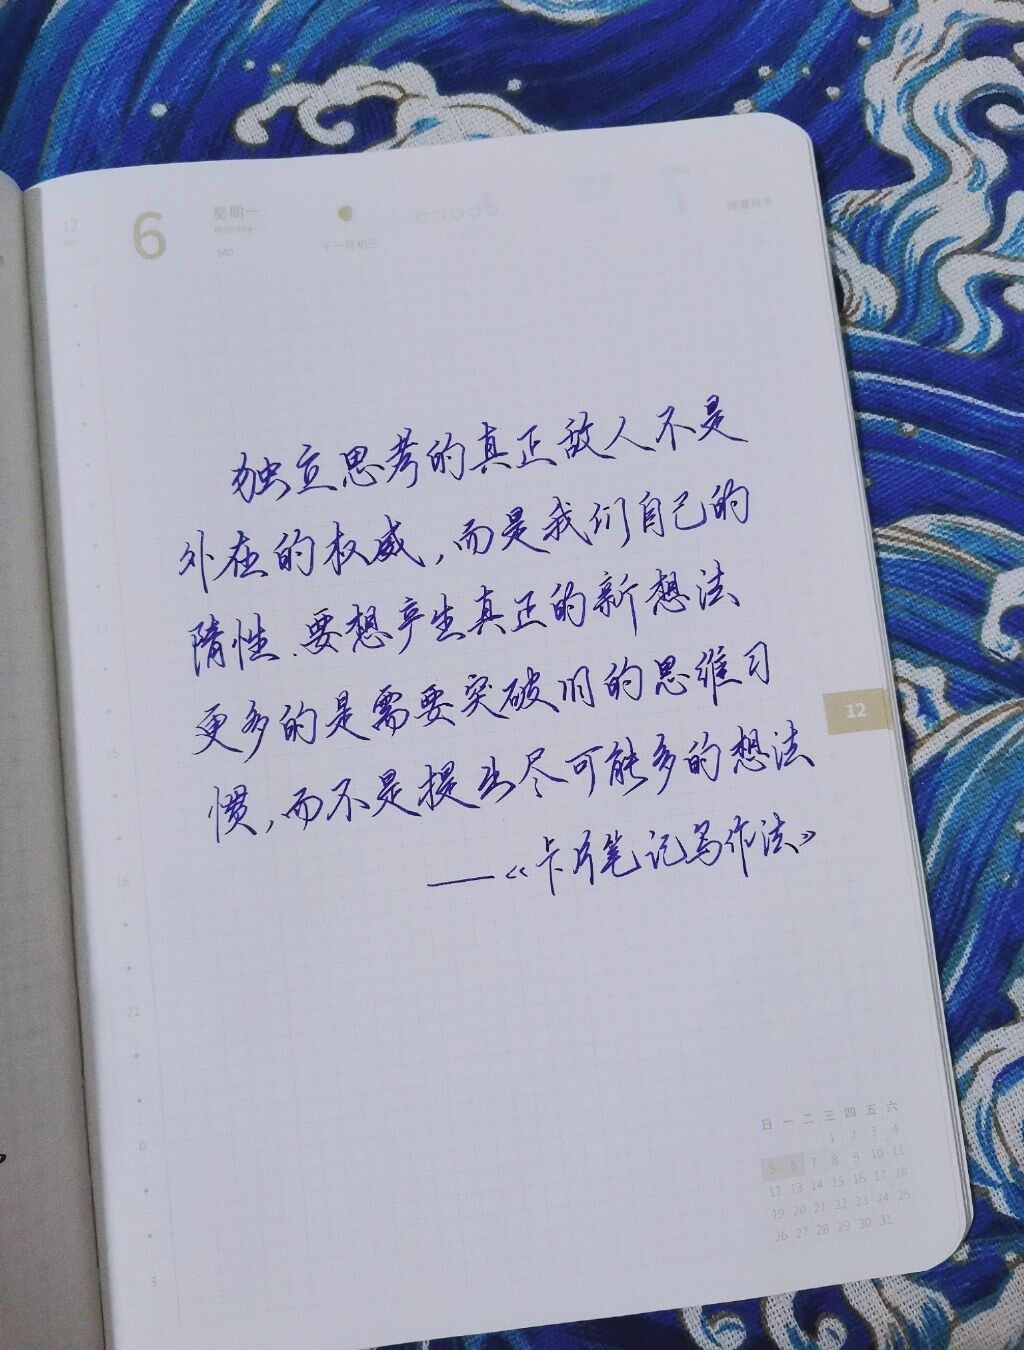 12
6
星期一
Monday
340
十一月初三
独立思考的真正敌人不是
外在的权威,而是我们自己的
惰性.要想产生真正的新想法
更多的是需要突破旧的思维习
惯,而不是提出尽可能多的想法
——《卡片笔记写作法》
6
9
12
15
18
21
0
3
12
日 一 二 三 四 五 六
1 2 3 4
5 6 7 8 9 10 11
12 13 14 15 16 17 18
19 20 21 22 23 24 25
26 27 28 29 30 31